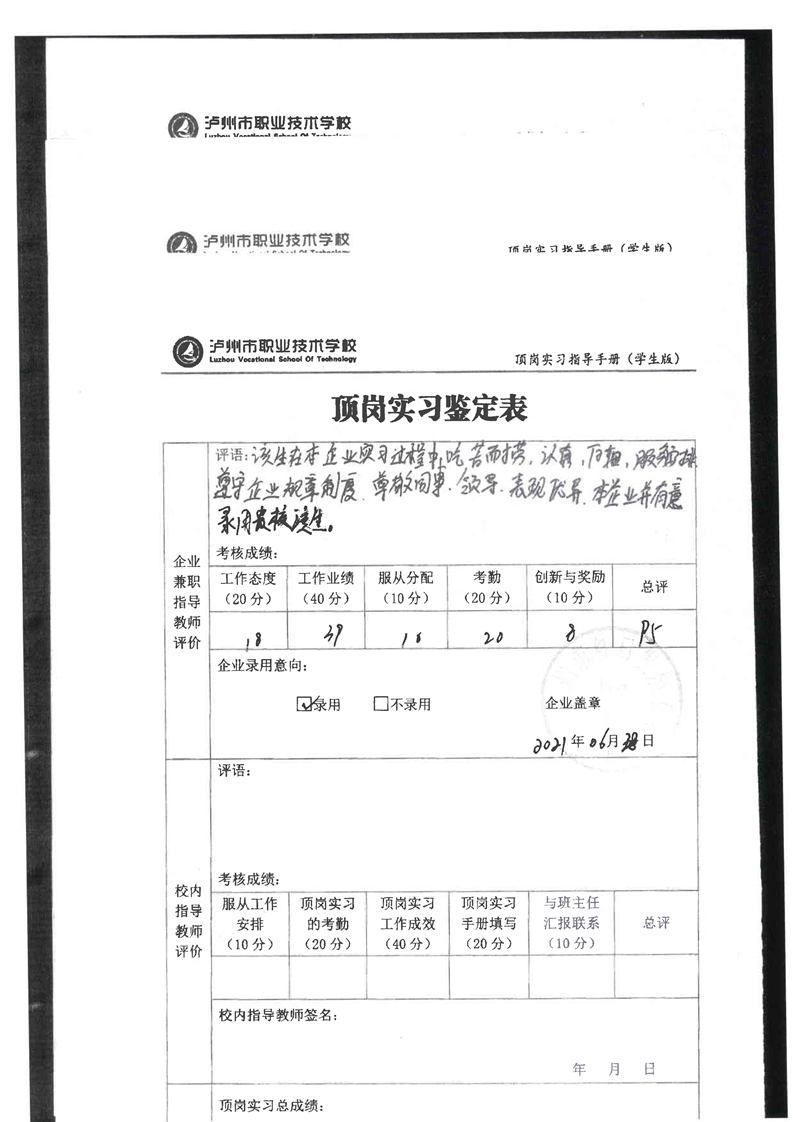 泸州市职业技术学校
泸州市职业技术学校
顶岗实习指导手册（学生版）
泸州市职业技术学校
Luzhou Vocational School Of Technology
顶岗实习指导手册（学生版）
顶岗实习鉴定表
评语：该生在本企业实习过程中，吃苦而劳，认真，服从安排
遵守企业规章制度、尊敬同事、领导、表现优异、本企业并有意
录用该生。
考核成绩：
企业
兼职
指导
教师
评价
工作态度
（20分）
工作业绩
（40分）
服从分配
（10分）
考勤
（20分）
创新与奖励
（10分）
总评
18
39
10
20
8
95
企业录用意向：
录用
不录用
企业盖章
2021年06月28日
评语：
考核成绩：
校内
指导
教师
评价
服从工作
安排
（10分）
顶岗实习
的考勤
（20分）
顶岗实习
工作成效
（40分）
顶岗实习
手册填写
（20分）
与班主任
汇报联系
（10分）
总评
校内指导教师签名：
年 月 日
顶岗实习总成绩：